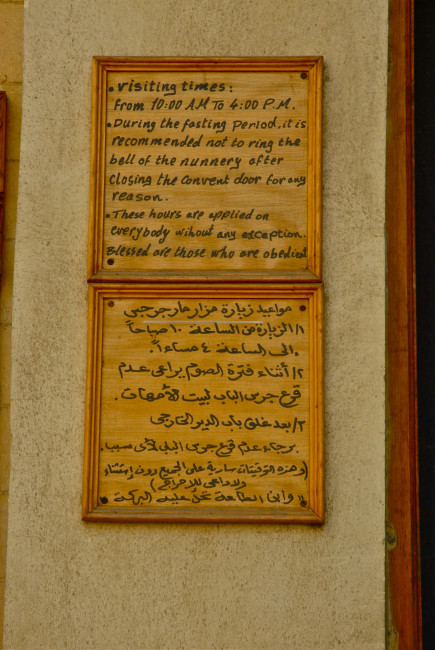 • visiting times:
From 10:00 AM To 4:00 P.M.
• During the fasting Period, it is
recommended not to ring the
bell of the nunnery after
closing the convent door for any
reason.
• These hours are applied on
everybody wihout any exception.
Blessed are those who are obedient
مواعيد زيارة مزار مارجرجس
١/ الزيارة من الساعة ١٠ صباحاً
إلى الساعة ٤ مساءاً.
٢/ أثناء فترة الصوم يراعى عدم
قرع جرس الباب لبيت الأمهات.
٣/ بعد غلق باب الدير الخارجى
برجاء عدم قرع جرس البلى لأى سبب.
(وهذه التوقيتات سارية على الجميع دون إستثناء
ولاداعى للإحراج)
وابن الطاعة تحل عليه البركة